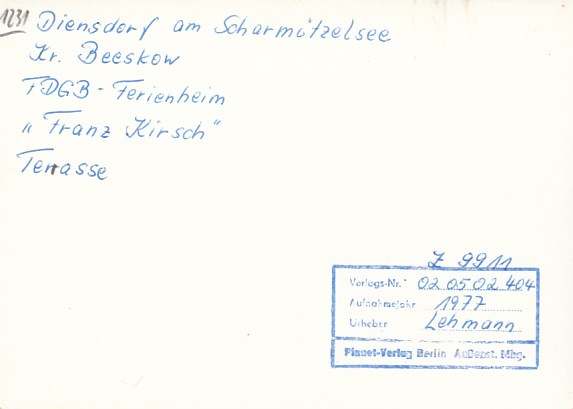 1231 Diensdorf am Scharmützelsee
Kr. Beeskow
FDGB-Ferienheim
„Franz Kirsch"
Terrasse
Z 9911
Verlags-Nr. 02 05 02 404
Aufnahmejahr 1977
Urheber Lehmann
Planet-Verlag Berlin Außenst. Mbg.